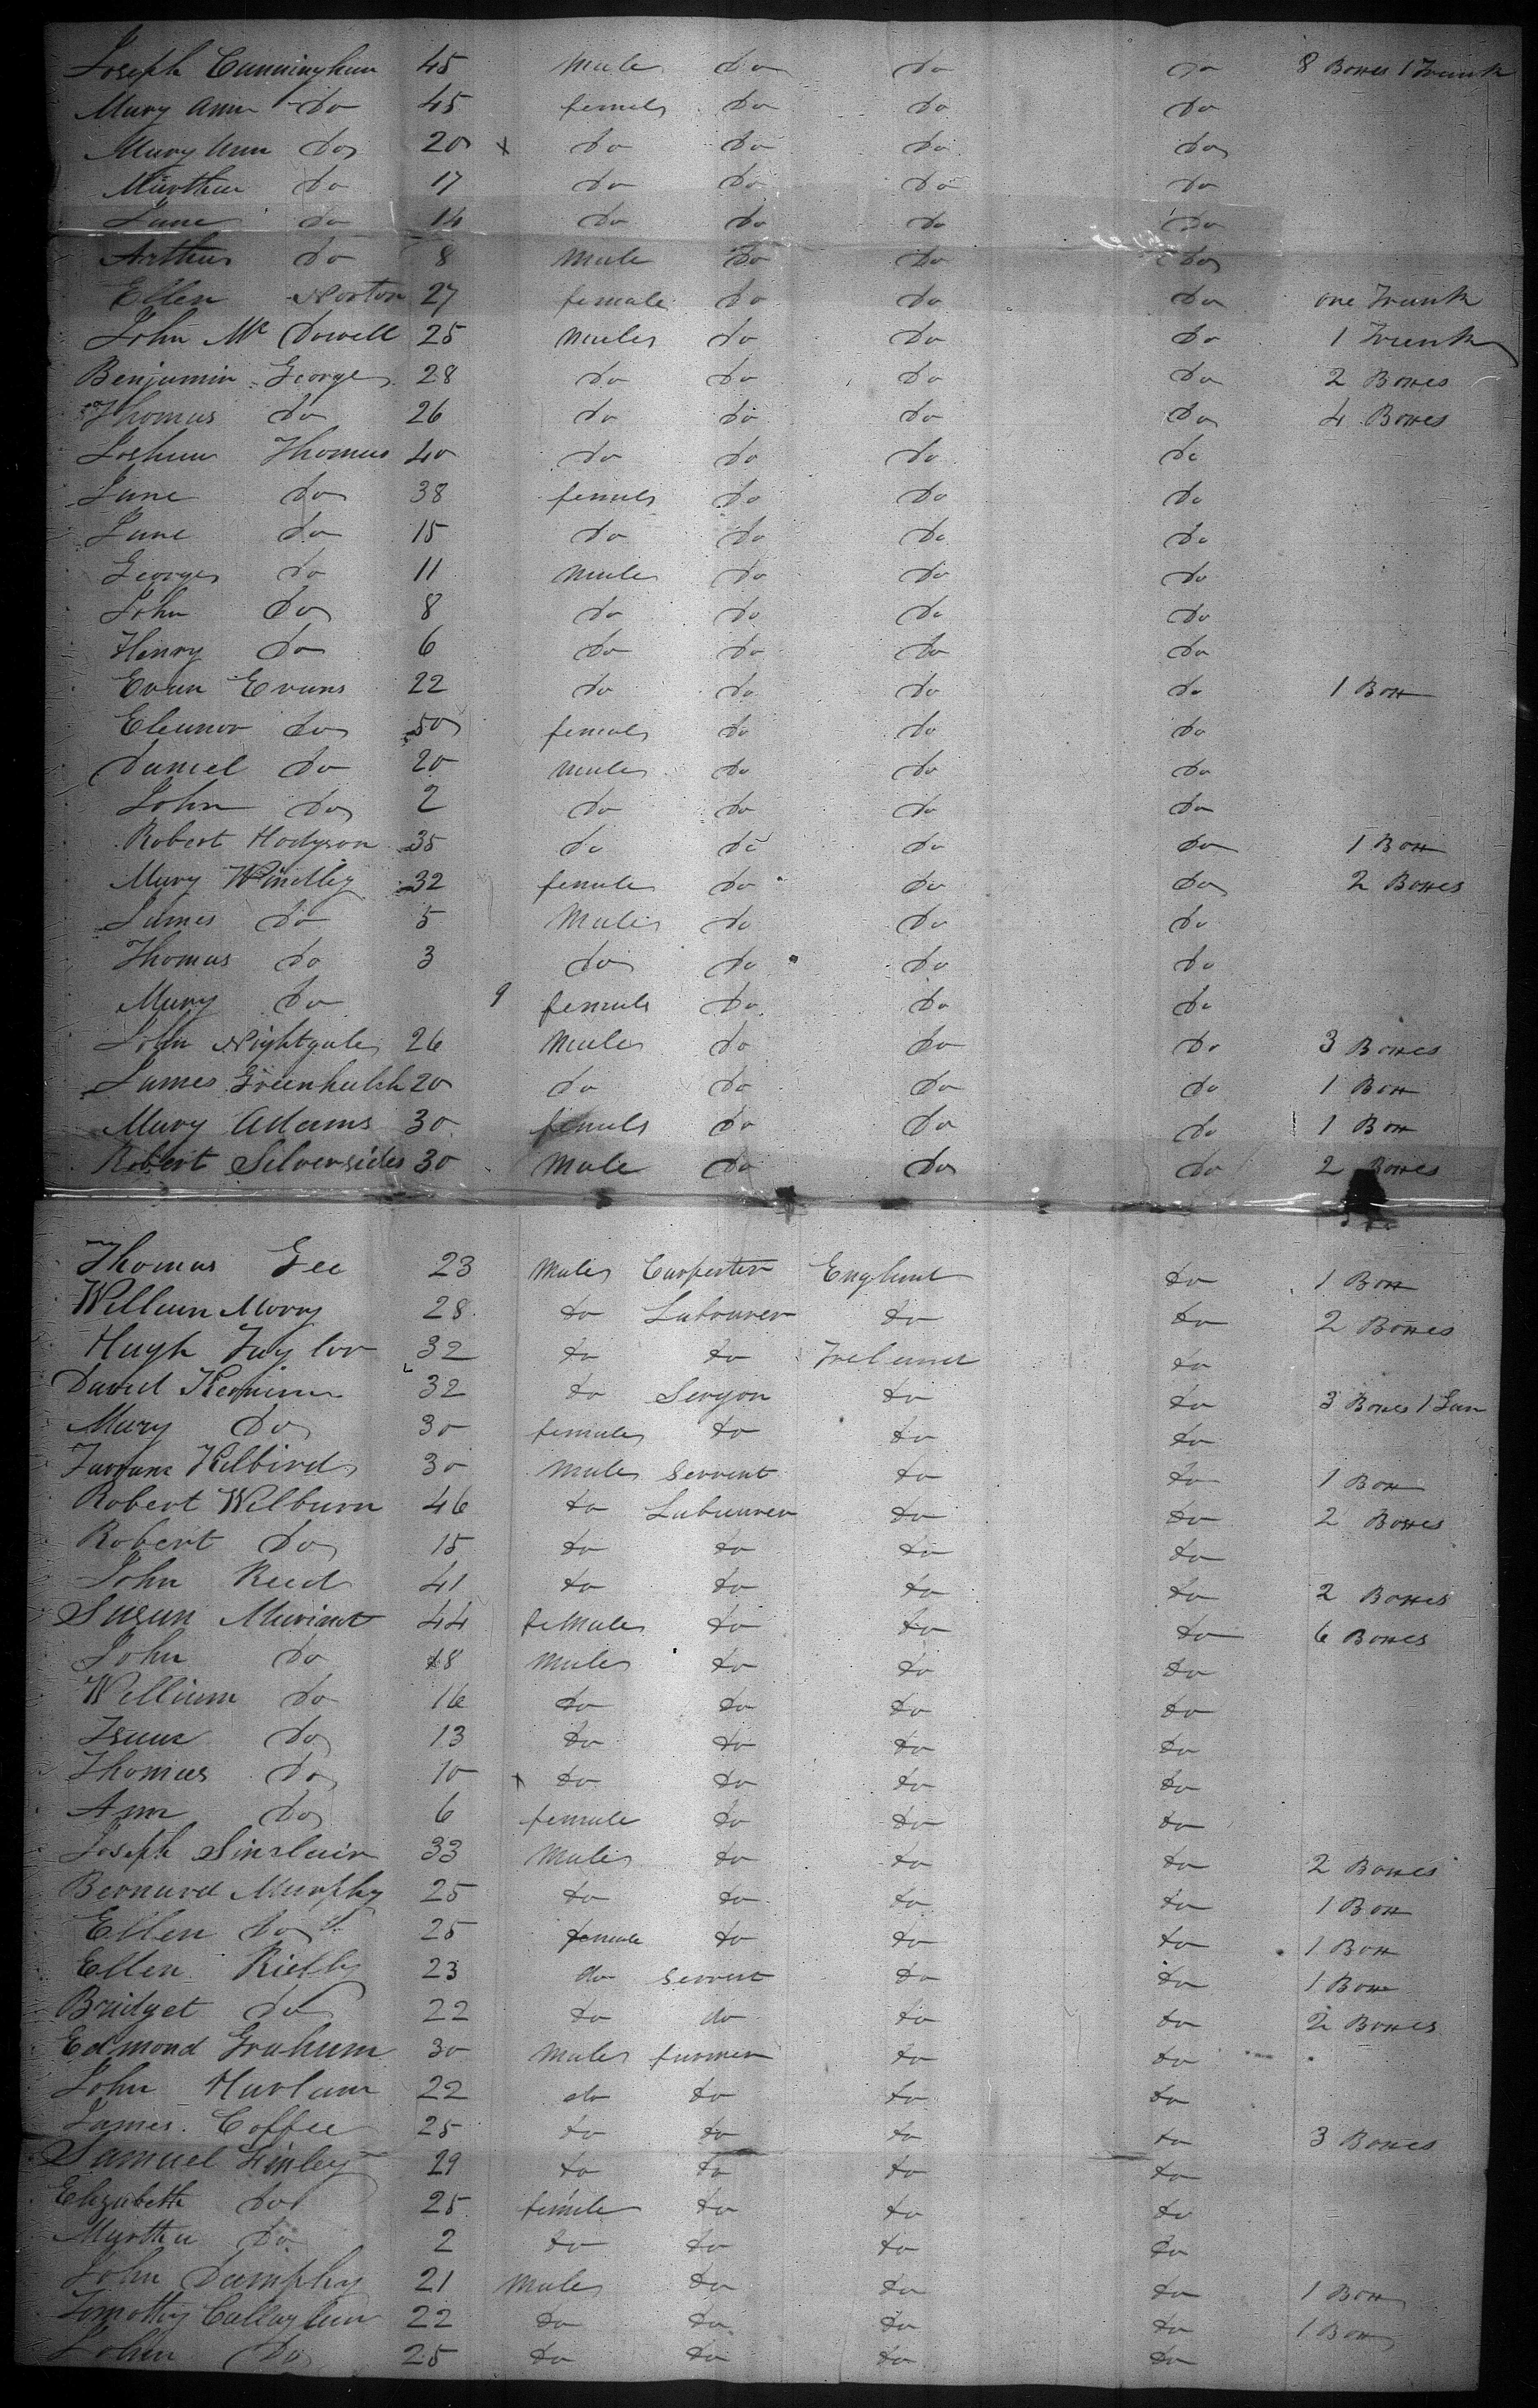 Joseph Cunningham 45 Male do do do 8 Boxes 1 Trunk
Mary Ann do 45 female do do do
Mary Ann do 20 x do do do do
Marthew do 17 do do do do
Jane do 14 do do do do
Arthur do 8 Male do do do
Ellen Norton 27 female do do do one Trunk
John Mc Dowell 25 Male do do do 1 Trunk
Benjamin George 28 do do do do 2 Boxes
Thomas do 26 do do do do 4 Boxes
Joshua Thomas 40 do do do do
Jane do 38 female do do do
Jane do 15 do do do do
George do 11 Male do do do
John do 8 do do do do
Henry do 6 do do do do
Evan Evans 22 do do do do 1 Box
Eleanor do 50 female do do do
Daniel do 20 Male do do do
John do 2 do do do do
Robert Hodgson 35 do do do do 1 Box
Mary Windley 32 female do do do 2 Boxes
James do 5 Male do do do
Thomas do 3 do do do do
Mary do 9 female do do do
John Nightgale 26 Male do do do 3 Boxes
James Greenhalch 20 do do do do 1 Box
Mary Adams 30 female do do do 1 Box
Robert Silversides 30 Male do do do 2 Boxes
Thomas Gee 23 Male Carpenter England do 1 Box
William Morry 28 do Labourer do do 2 Boxes
Hugh Taylor 32 do do Ireland do
David 32 do Surgon do do 3 Boxes 1
Mary do 30 female do do do
Kilbird 30 Male Servent do do 1 Box
Robert Wilburn 46 do Labourer do do 2 Boxes
Robert do 15 do do do do
John Reed 41 do do do do 2 Boxes
Susan 44 female do do do 6 Boxes
John do 18 Male do do do
William do 16 do do do do
Isaac do 13 do do do do
Thomas do 10 x do do do do
Ann do 6 female do do do
Joseph Sinclair 33 Male do do do 2 Boxes
Bernard Murphy 25 do do do do 1 Box
Ellen do 25 female do do do 1 Box
Ellen Rielly 23 do Servent do do 1 Box
Bridget do 22 do do do do 2 Boxes
Edmond Graham 30 Male farmer do do
John Harlam 22 do do do do
James Coffee 25 do do do do 3 Boxes
Samuel Finley 29 do do do do
Elizabeth do 25 female do do do
Martha do 2 do do do do
John Dumphy 21 Male do do do 1 Box
Timothy Callaghan 22 do do do do 1 Box
John do 25 do do do do